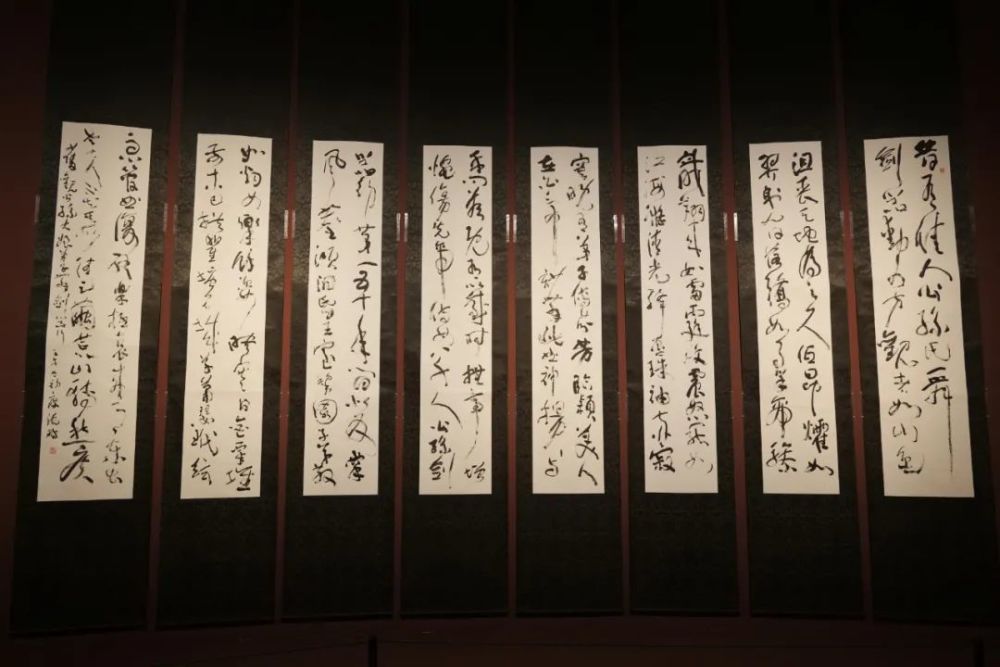 昔有佳人公孫氏一舞
劍器動四方觀者如山色
沮喪天地為之久低昂㸌如
羿射九日落矯如群帝驂
龍翔來如雷霆收震怒罷如
江海凝清光絳唇珠袖兩寂
寞晚有弟子傳芬芳臨潁美人
在白帝妙舞此曲神揚揚與
余問答既有以感時撫事增
惋傷先帝侍女八千人公孫劍
器初第一五十年間似反掌
風塵澒洞昏王室梨園子弟散
如煙女樂餘姿映寒日金粟堆
南木已拱瞿塘石城草蕭瑟玳筵
急管曲復終樂極哀來月東出
老夫不知其所往足繭荒山轉愁疾
觀公孫大娘弟子舞劍器行